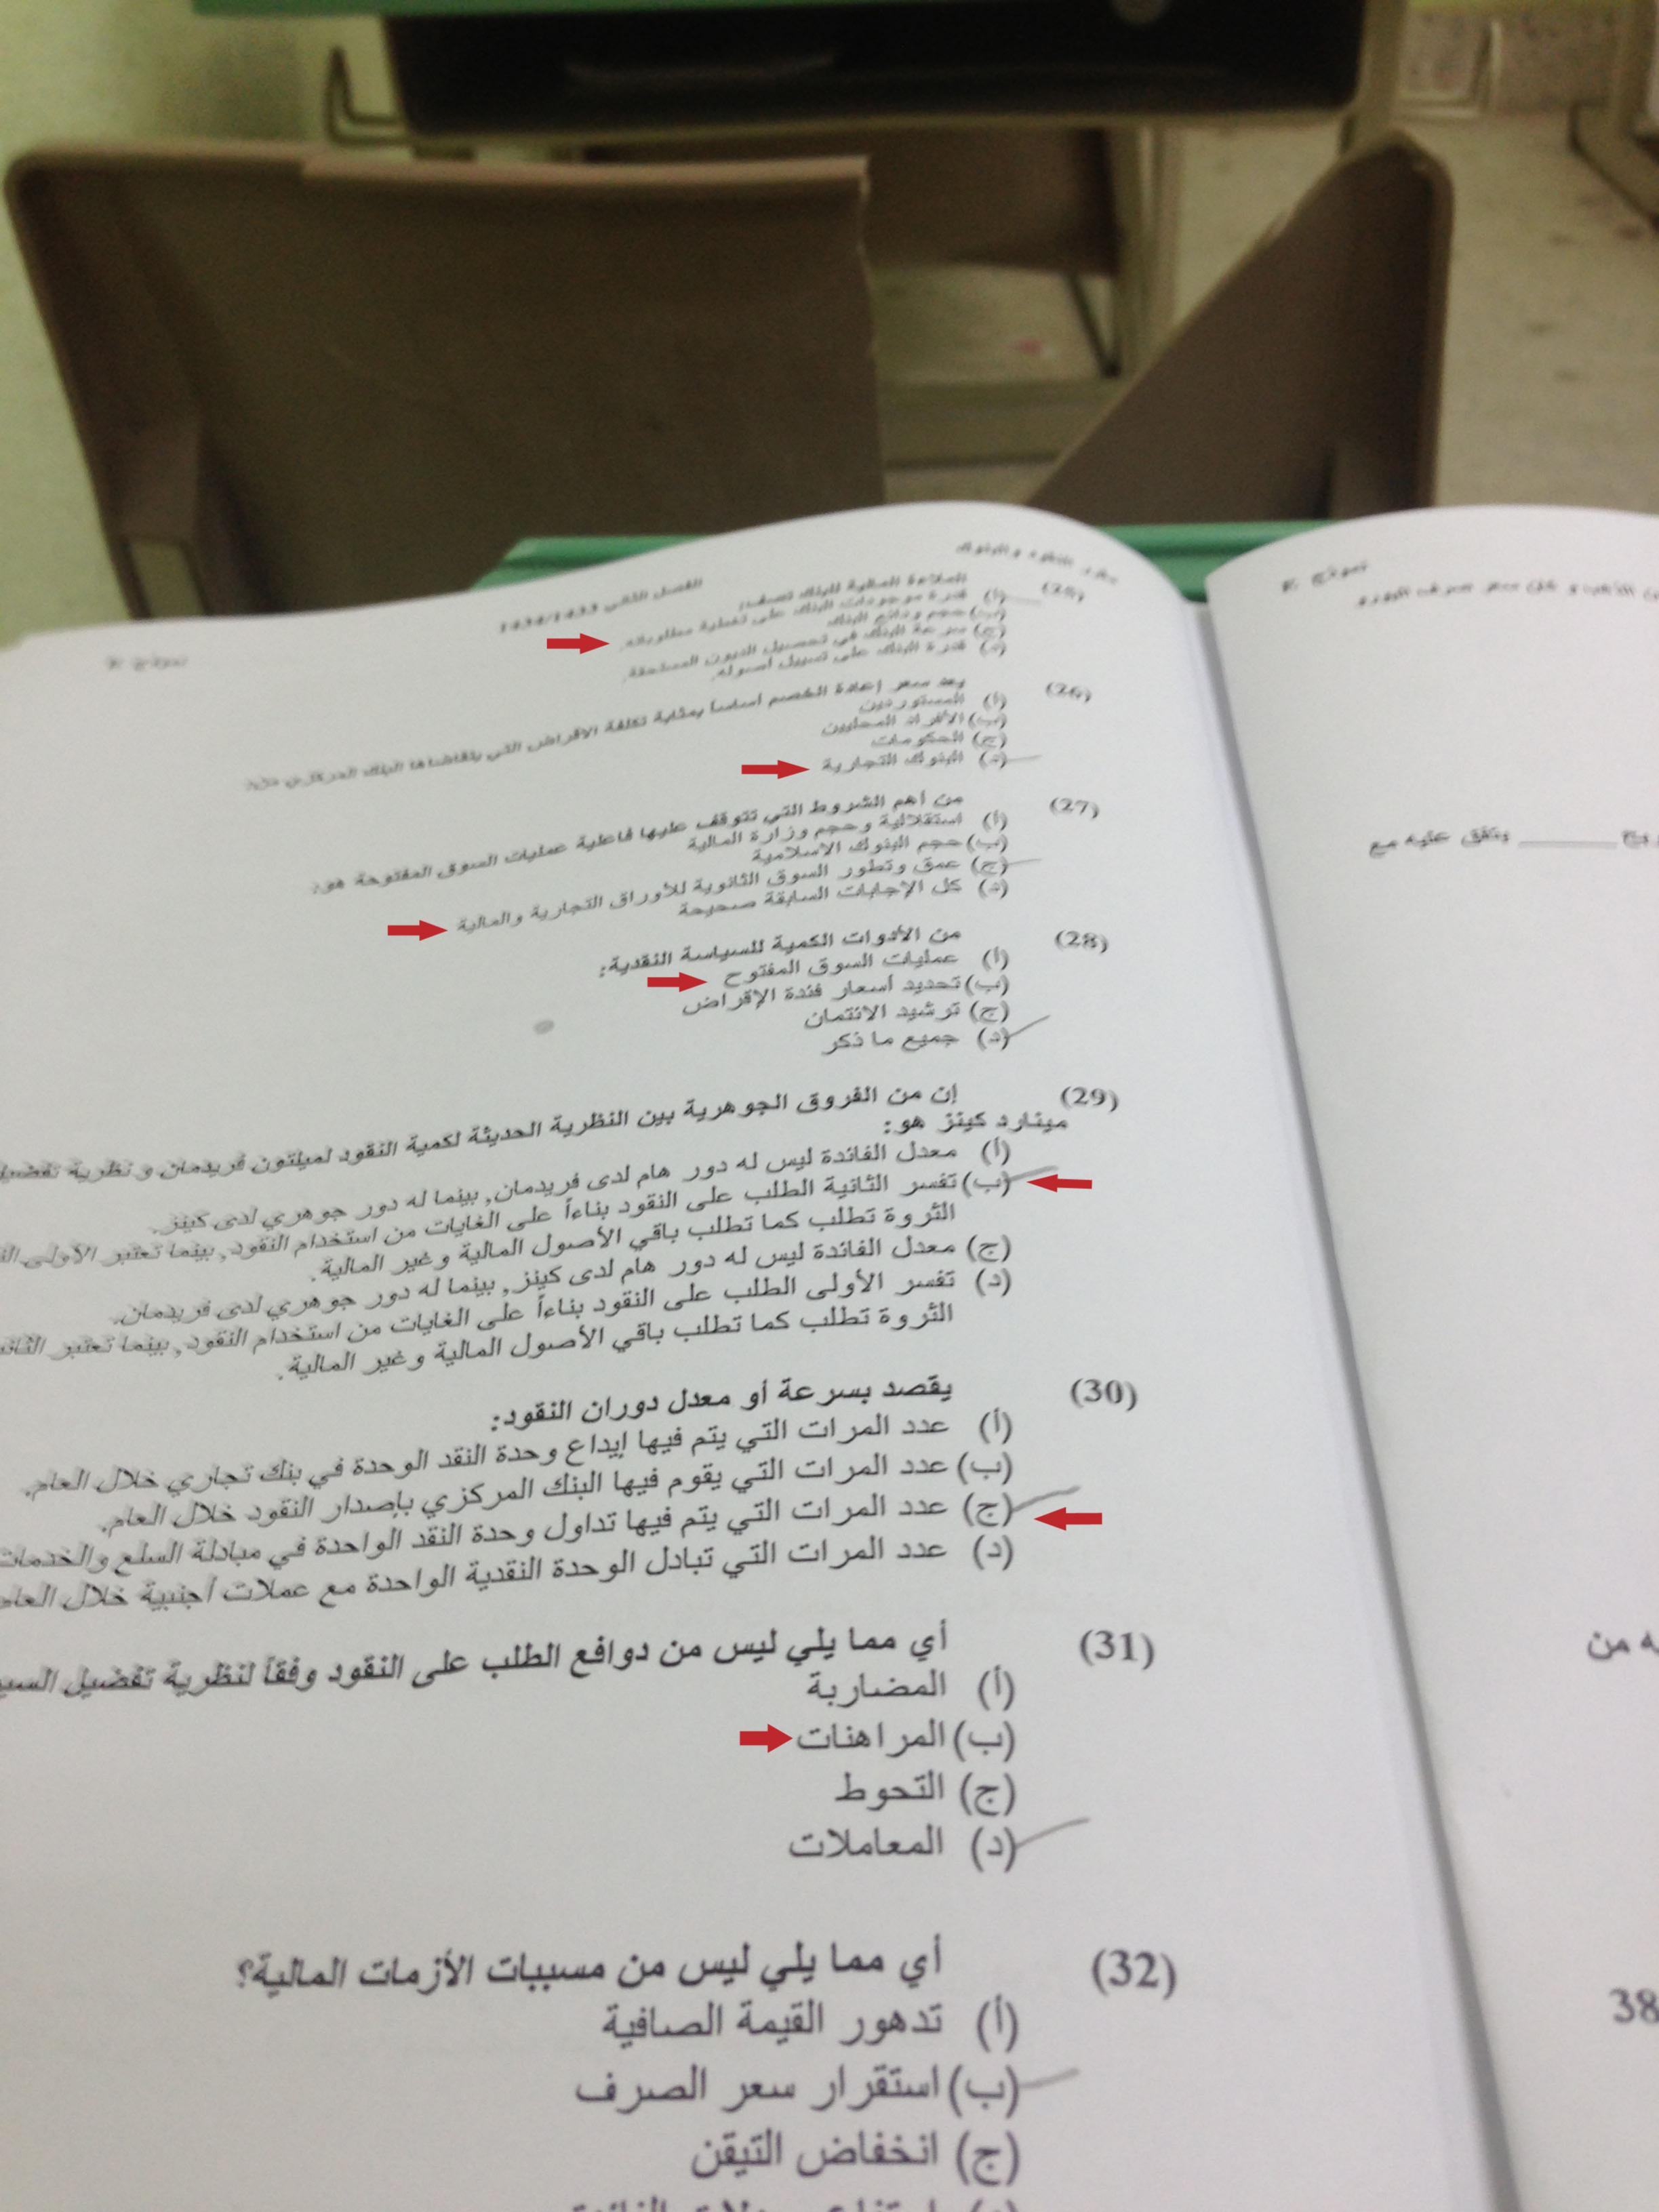 مقرر النقود والبنوك
الفصل الثاني 1434/1433
نموذج
(25) الملاءة المالية للبنك تصف:
(أ) قدرة موجودات البنك على تغطية مطلوباته.
(ب) حجم ودائع البنك
(ج) سرعة البنك في تحصيل الديون المستحقة.
(د) قدرة البنك على تسييل أصوله.
(26) يعد سعر إعادة الخصم أساساً بمثابة تكلفة الاقراض التي يتقاضاها البنك المركزي من:
(أ) المستوردين
(ب) الأفراد المحليين
(ج) الحكومات
(د) البنوك التجارية
(27) من أهم الشروط التي تتوقف عليها فاعلية عمليات السوق المفتوحة هو:
(أ) استقلالية وحجم وزارة المالية
(ب) حجم البنوك الاسلامية
(ج) عمق وتطور السوق الثانوية للأوراق التجارية والمالية
(د) كل الإجابات السابقة صحيحة
(28) من الأدوات الكمية للسياسة النقدية:
(أ) عمليات السوق المفتوح
(ب) تحديد أسعار فئدة الإقراض
(ج) ترشيد الائتمان
(د) جميع ما ذكر
(29) إن من الفروق الجوهرية بين النظرية الحديثة لكمية النقود لميلتون فريدمان و نظرية تفضيل
مينارد كينز هو:
(أ) معدل الفائدة ليس له دور هام لدى فريدمان, بينما له دور جوهري لدى كينز.
(ب) تفسر الثانية الطلب على النقود بناءاً على الغايات من استخدام النقود, بينما تعتبر الأولى
الثروة تطلب كما تطلب باقي الأصول المالية وغير المالية.
(ج) معدل الفائدة ليس له دور هام لدى كينز, بينما له دور جوهري لدى فريدمان.
(د) تفسر الأولى الطلب على النقود بناءاً على الغايات من استخدام النقود, بينما تعتبر
الثروة تطلب كما تطلب باقي الأصول المالية وغير المالية.
(30) يقصد بسرعة أو معدل دوران النقود:
(أ) عدد المرات التي يتم فيها إيداع وحدة النقد الوحدة في بنك تجاري خلال العام.
(ب) عدد المرات التي يقوم فيها البنك المركزي بإصدار النقود خلال العام.
(ج) عدد المرات التي يتم فيها تداول وحدة النقد الواحدة في مبادلة السلع والخدمات
(د) عدد المرات التي تبادل الوحدة النقدية الواحدة مع عملات أجنبية خلال العام
(31) أي مما يلي ليس من دوافع الطلب على النقود وفقاً لنظرية تفضيل
(أ) المضاربة
(ب) المراهنات
(ج) التحوط
(د) المعاملات
(32) أي مما يلي ليس من مسببات الأزمات المالية؟
(أ) تدهور القيمة الصافية
(ب) استقرار سعر الصرف
(ج) انخفاض التيقن
نموذج
يتفق عليه مع
ه من
38